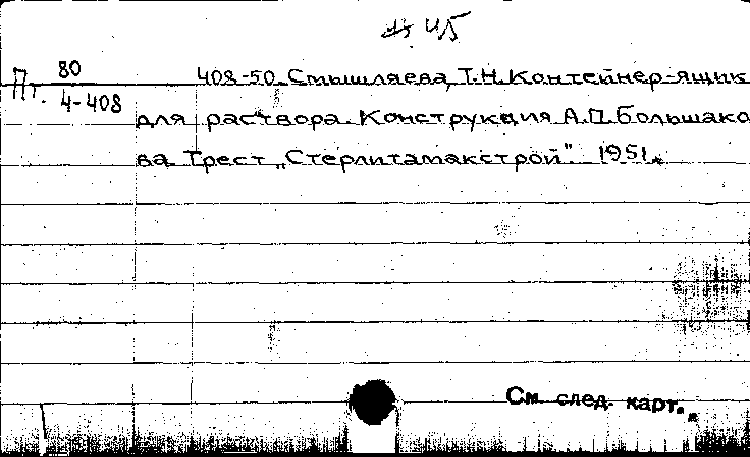 45
Пт. 80
4-408
408-50. Смышляева, Т.Н. Контейнер-ящик
для раствора. Конструкция А.П. Большако
ва. Трест „Стерлитамакстрой". 1951.
См. след. карт.